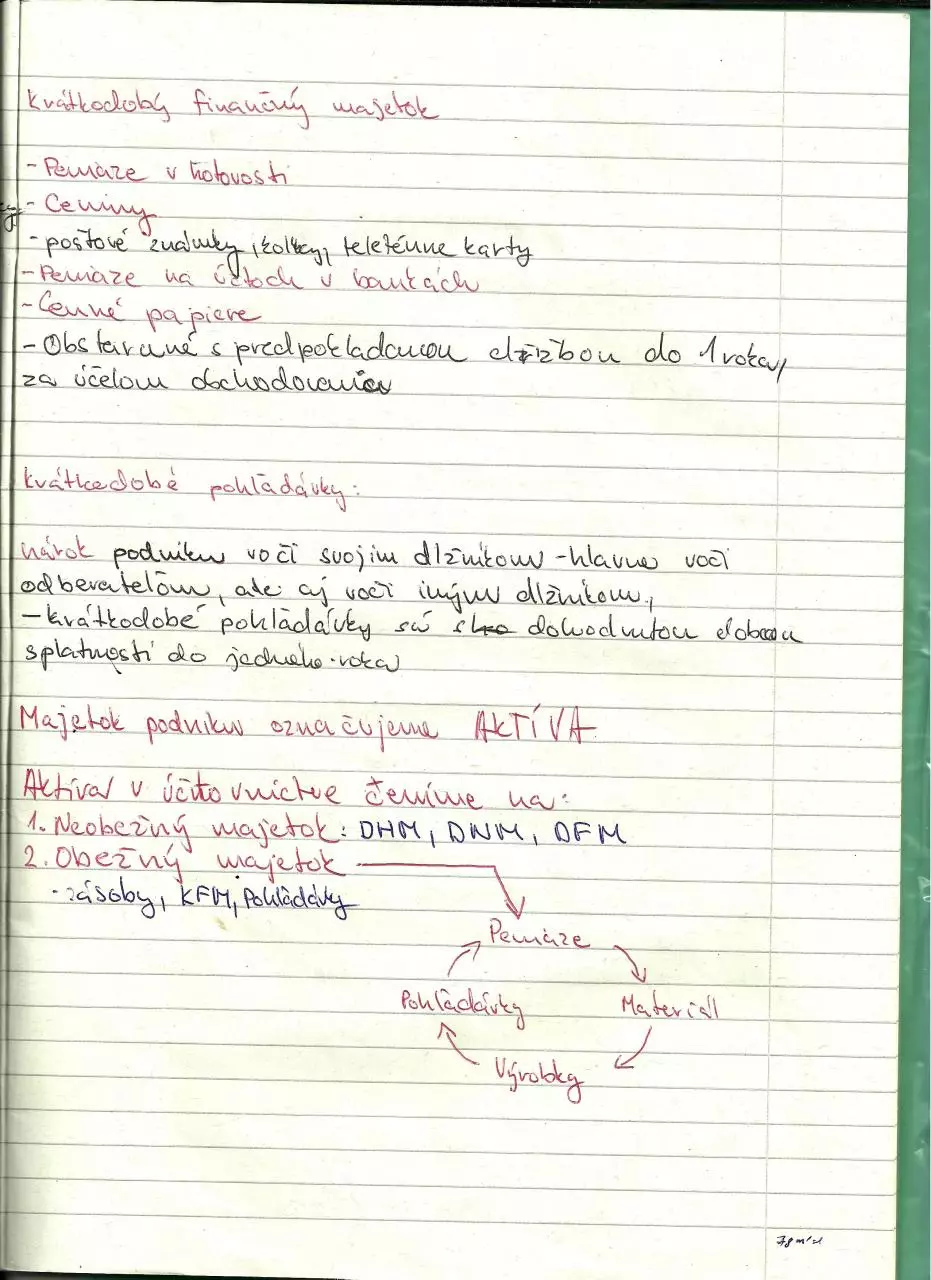 Krátkodobý finančný majetok
- Peniaze v hotovosti
- Ceniny
- poštové známky, kolky, telefónne karty
- Peniaze na účtoch v bankách
- Cenné papiere
- Obstarané s predpokladanou držbou do 1 roka,
za účelom obchodovania
Krátkodobé pohľadávky:
nárok podniku voči svojim dlžníkom - hlavne voči
odberateľom, ale aj voči iným dlžníkom,
- krátkodobé pohľadávky sú dohodnutou dobou
splatnosti do jedného roka
Majetok podniku označujeme AKTÍVA
Aktíva v účtovníctve členíme na:
1. Neobežný majetok: DHM, DNM, DFM
2. Obežný majetok
- zásoby, KFM, Pohľadávky
Peniaze
Pohľadávky Materiál
Výrobky